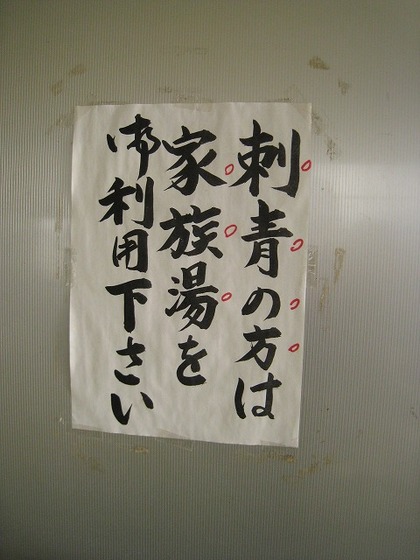 刺青の方は
家族湯を
御利用下さい